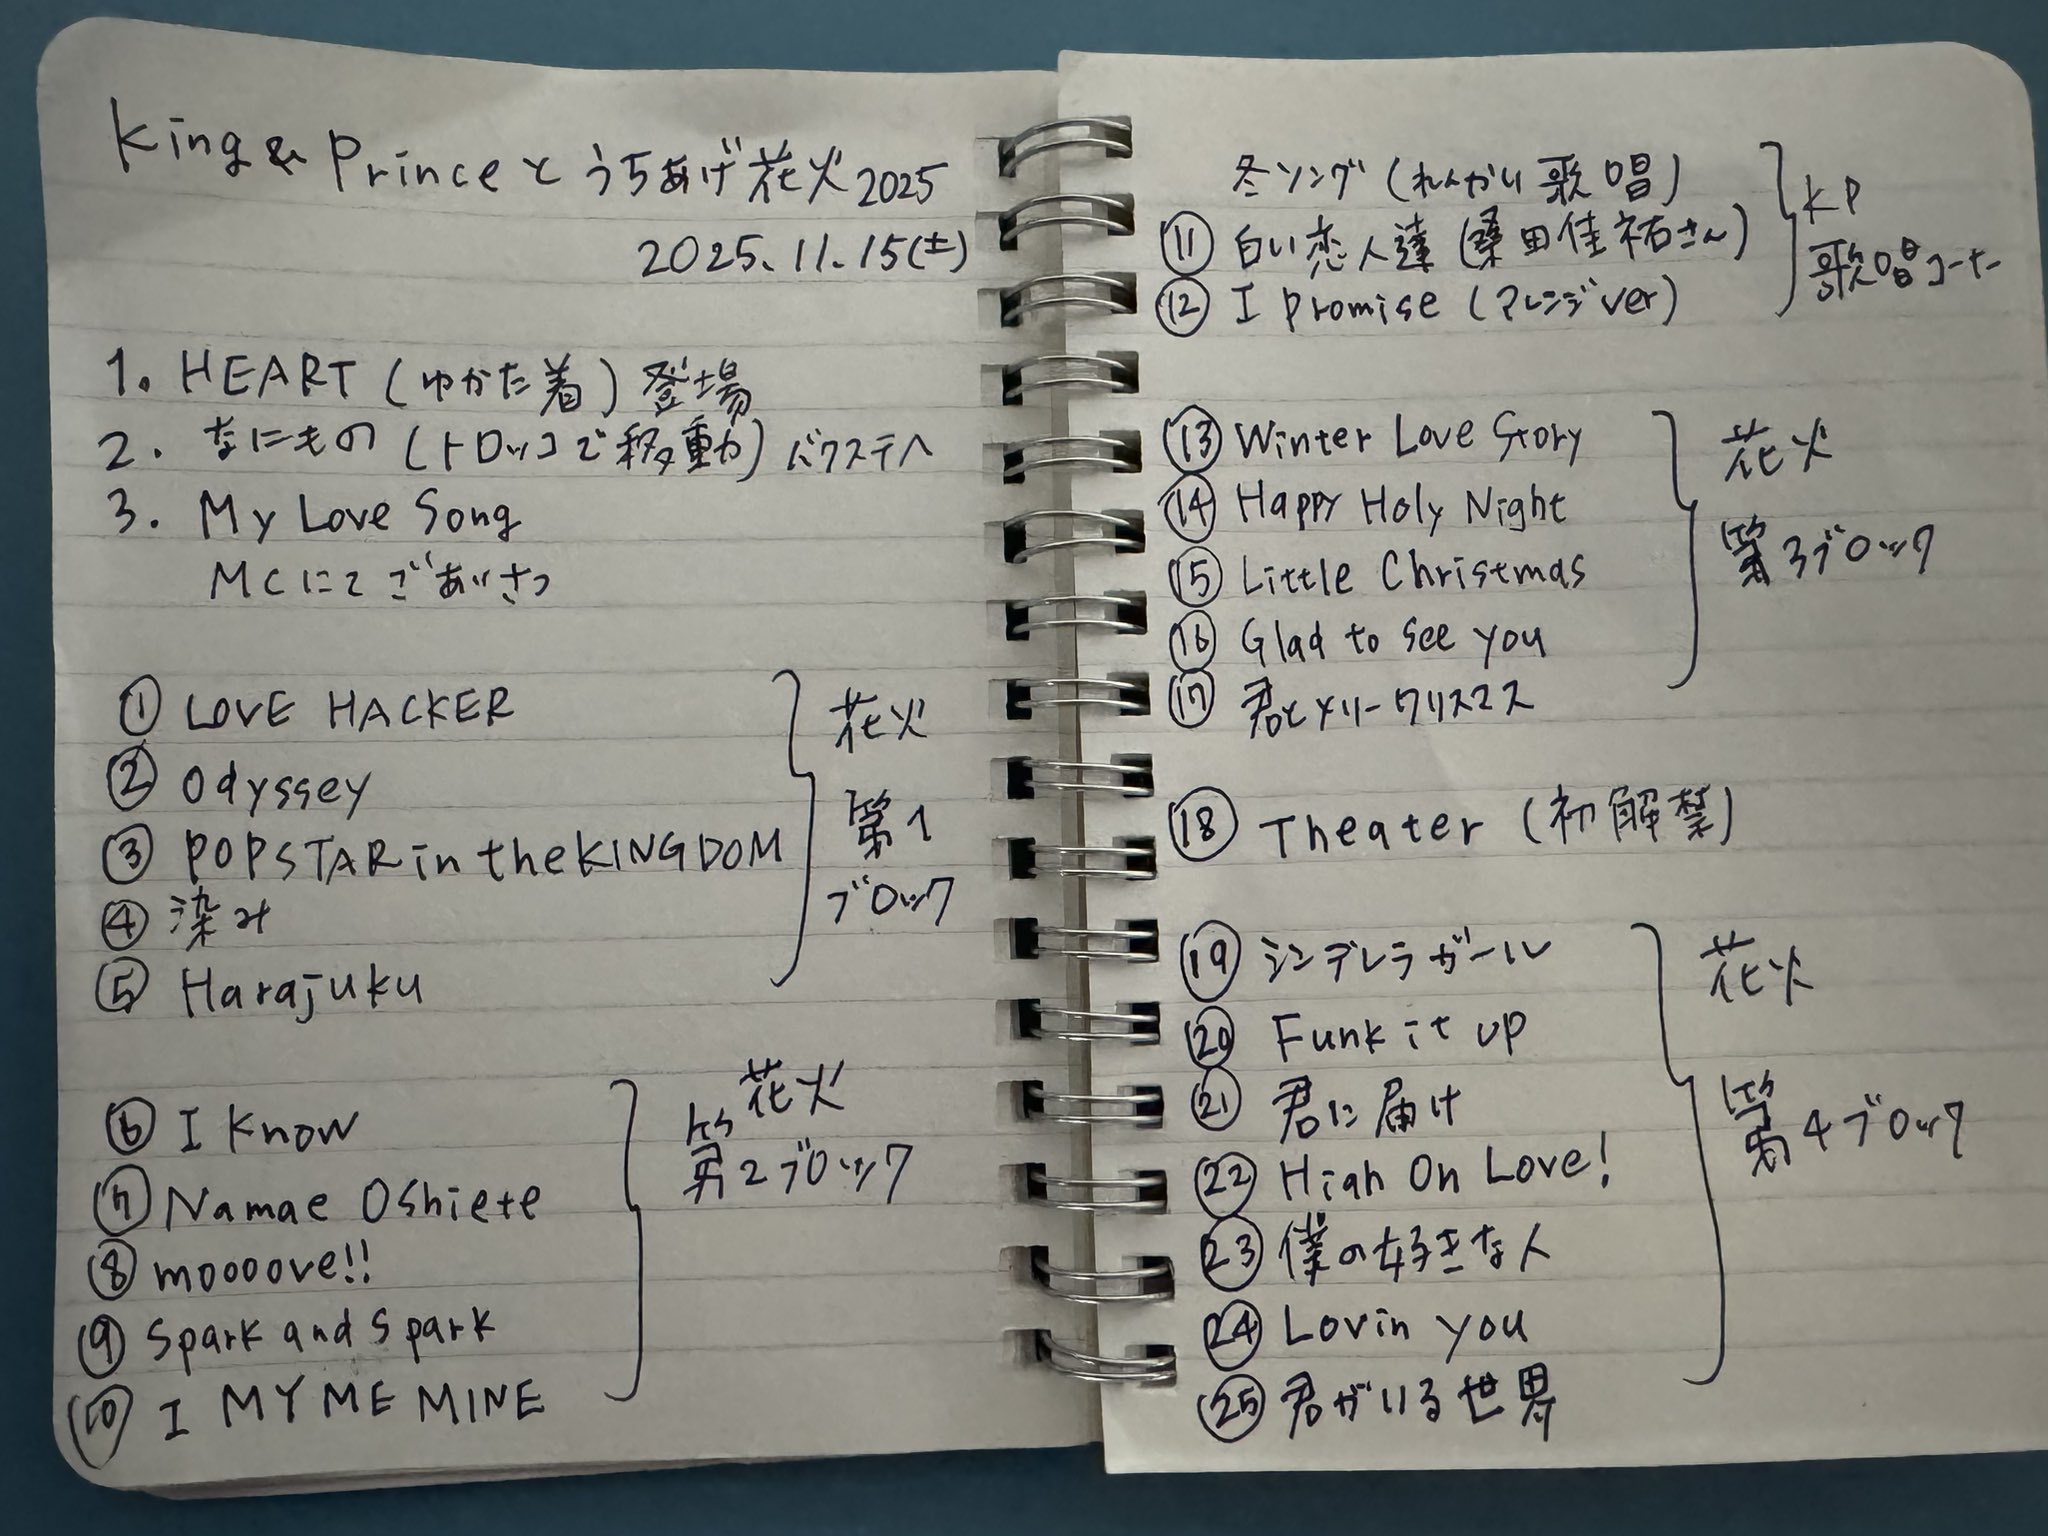 King & Prince とうちあげ花火 2025
2025.11.15(土)
1. HEART (ゆかた着) 登場
2. なにもの (トロッコで移動) バクステへ
3. My Love Song
MCにてごあいさつ
① LOVE HACKER
② Odyssey
③ POPSTAR in the KINGDOM
④ 染み
⑤ Harajuku
花火
第1
ブロック
⑥ I Know
⑦ Namae Oshiete
⑧ moooove!!
⑨ Spark and Spark
⑩ I MY ME MINE
花火
第2ブロック
冬ソング (れんかい歌唱)
⑪ 白い恋人達 (桑田佳祐さん)
⑫ I promise (アレンジver)
KP
歌唱コーナー
⑬ Winter Love Story
⑭ Happy Holy Night
⑮ Little Christmas
⑯ Glad to see you
⑰ 君とメリークリスマス
花火
第3ブロック
⑱ Theater (初解禁)
⑲ シンデレラガール
⑳ Funk it up
㉑ 君に届け
㉒ High On Love!
㉓ 僕の好きな人
㉔ Lovin you
㉕ 君がいる世界
花火
第4ブロック